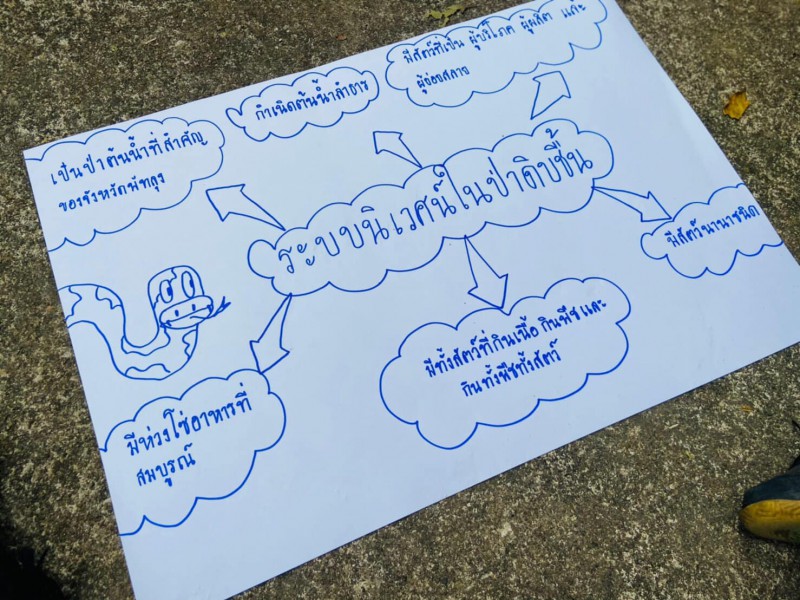 เป็นป่าต้นน้ำที่สำคัญ
ของจังหวัดพัทลุง
กำเนิดต้นน้ำลำธาร
มีสัตว์ที่เป็น ผู้บริโภค ผู้ผลิต และ
ผู้ย่อยสลาย
ระบบนิเวศน์ในป่าดิบชื้น
มีสัตว์นานาชนิด
มีทั้งสัตว์ที่กินเนื้อ กินพืช และ
กินทั้งพืชทั้งสัตว์
มีห่วงโซ่อาหารที่
สมบูรณ์